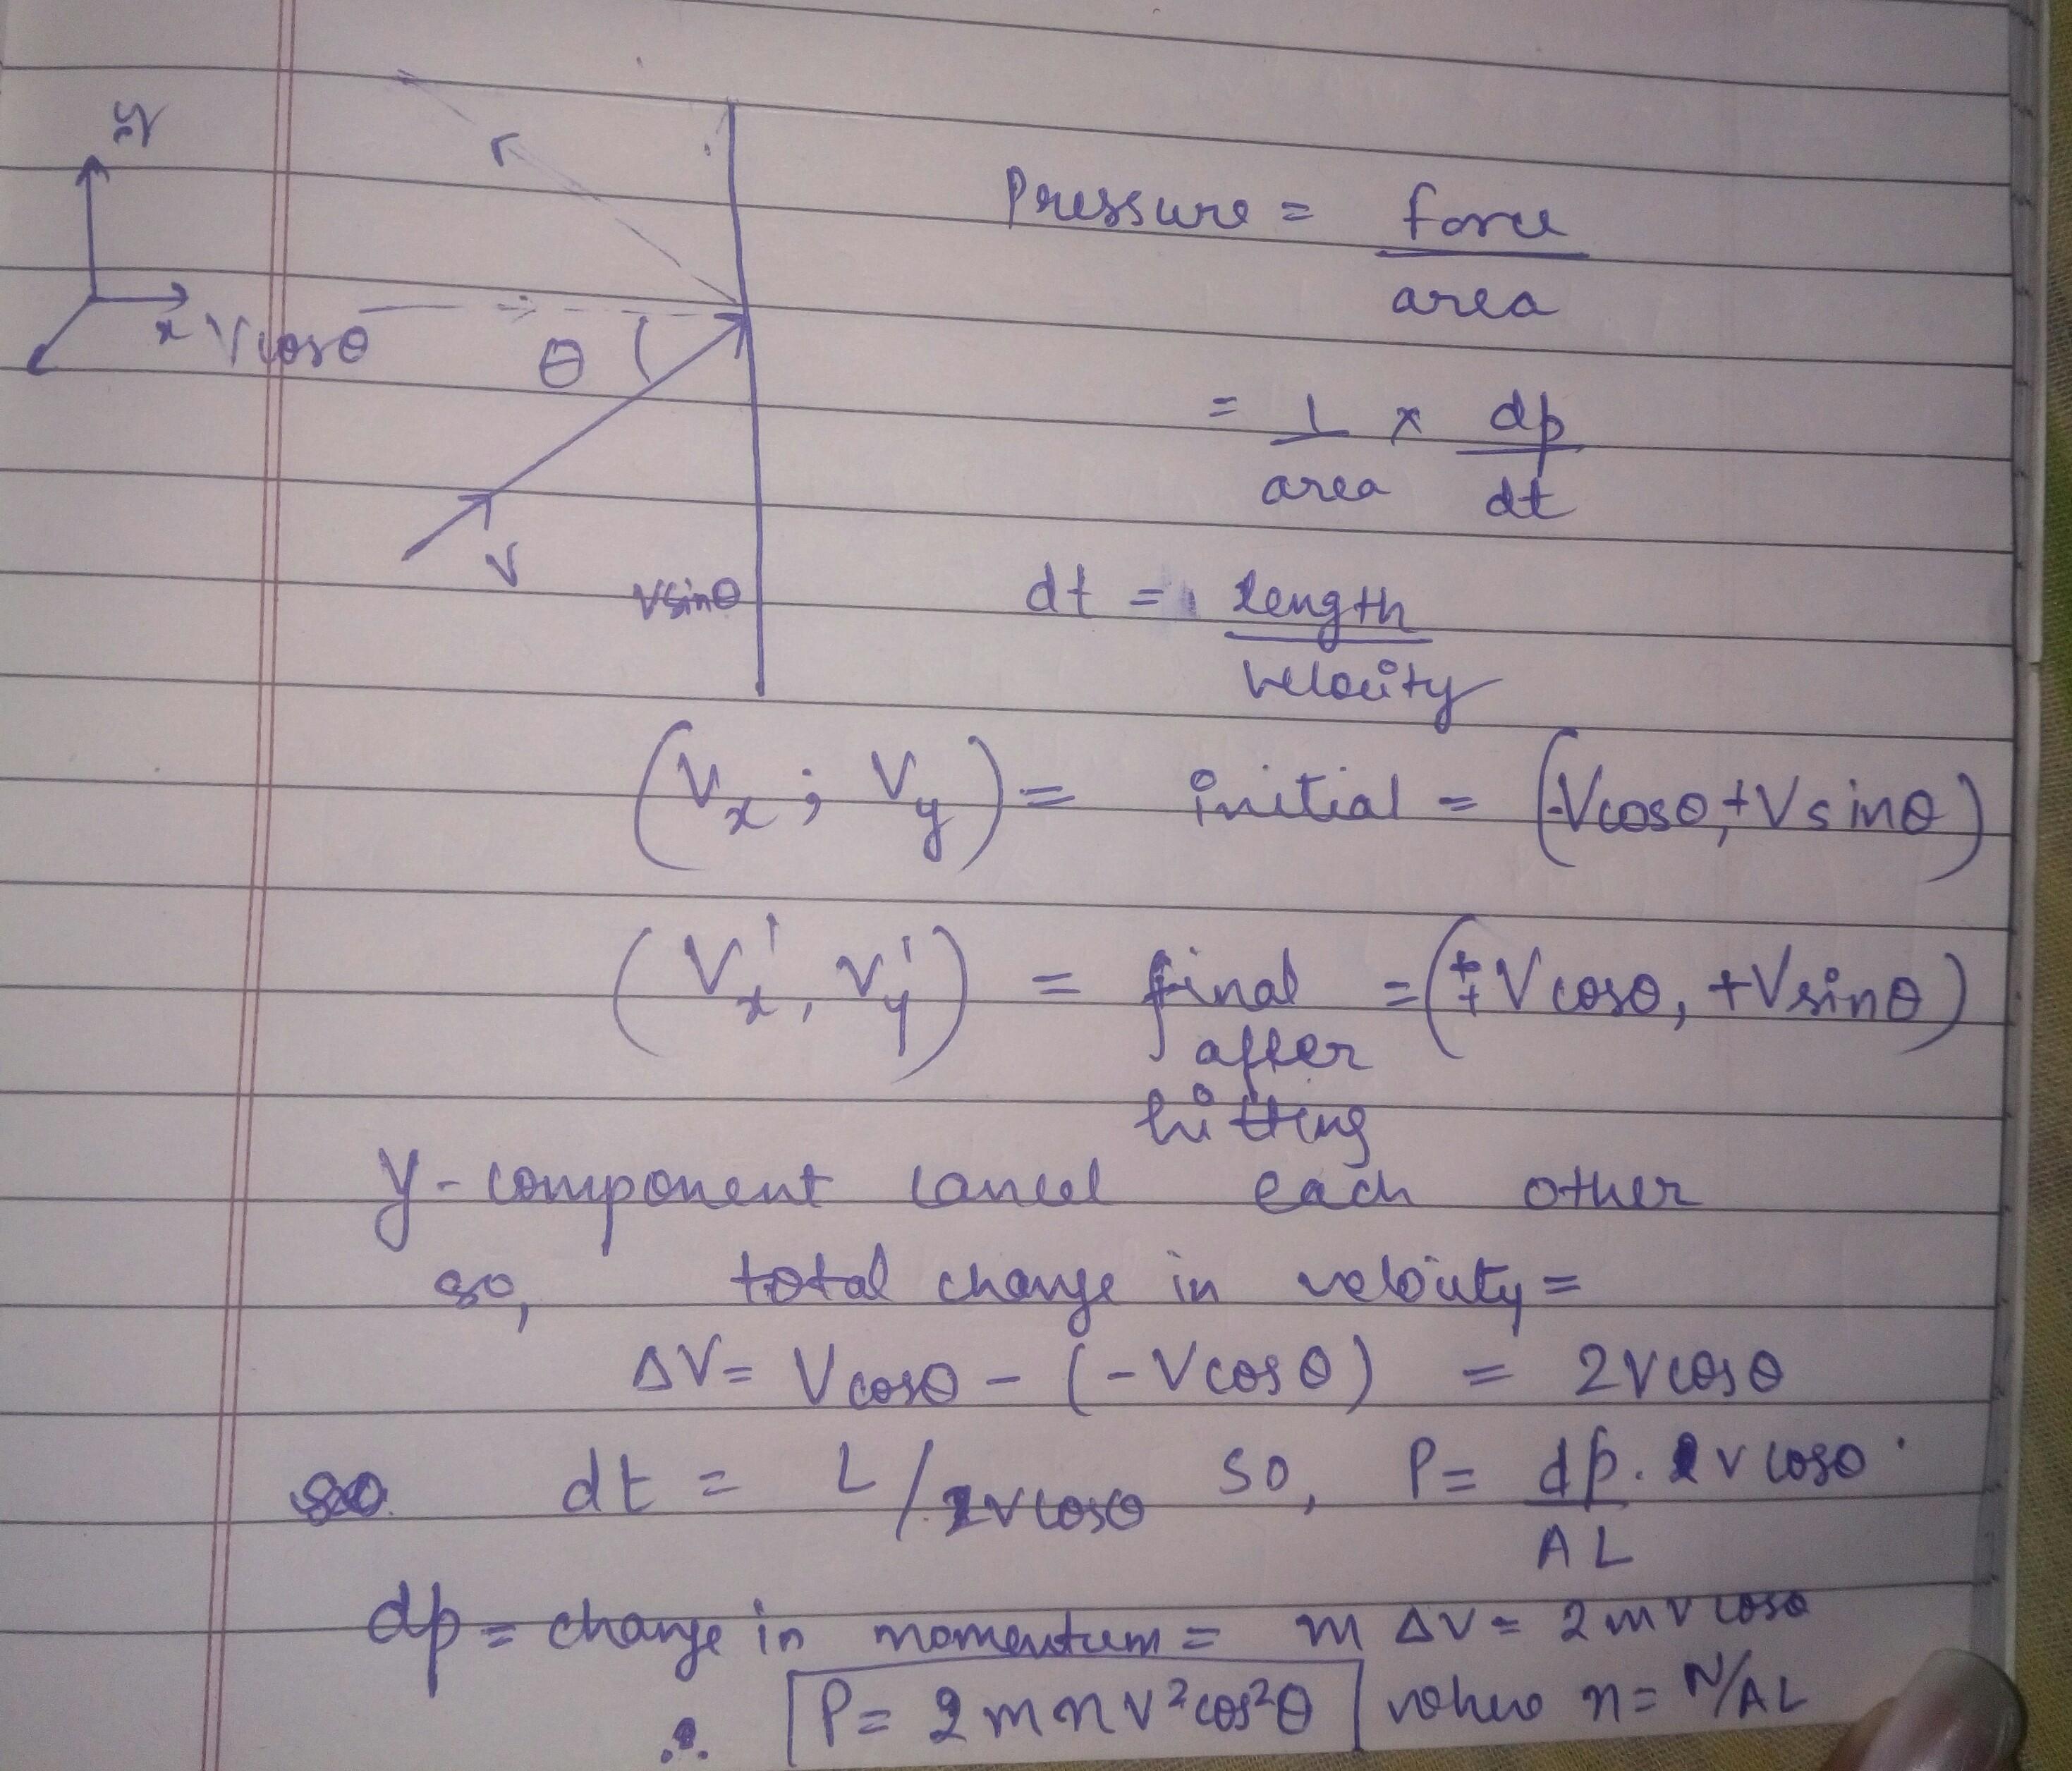 y
x
Vcosθ
θ
V
Vsinθ
Pressure = force / area
= 1/area × dp/dt
dt = length / velocity
(Vx ; Vy) = initial = (-Vcosθ, +Vsinθ)
(Vx', Vy') = final after hitting = (+Vcosθ, +Vsinθ)
y-component cancel each other
so, total change in velocity =
ΔV = Vcosθ - (-Vcosθ) = 2Vcosθ
so dt = L/Vcosθ so, P = dp.Vcosθ / AL
dp = change in momentum = mΔV = 2mVcosθ
∴ P = 2mnV²cos²θ where n = N/AL